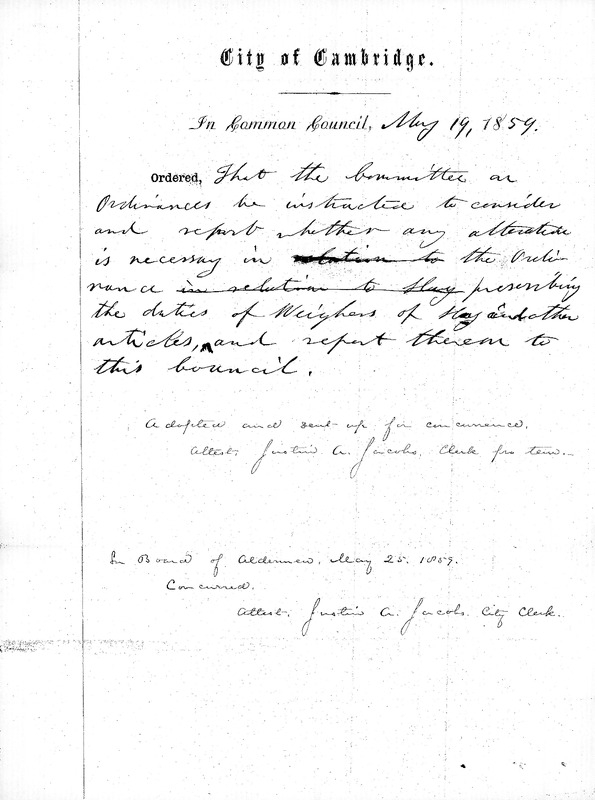 City of Cambridge.
In Common Council, May 19, 1859.
Ordered, That the Committee on
Ordinances be instructed to consider
and report whether any alteration
is necessary in relation to the Ordi-
nance in relation to Hay prescribing
the duties of Weighers of Hay and other
articles, and report thereon to
this Council.
Adopted and sent up for concurrence.
Attest, Justin A. Jacobs, Clerk pro tem.
In Board of Aldermen, May 25, 1859.
Concurred.
Attest, Justin A. Jacobs, City Clerk.